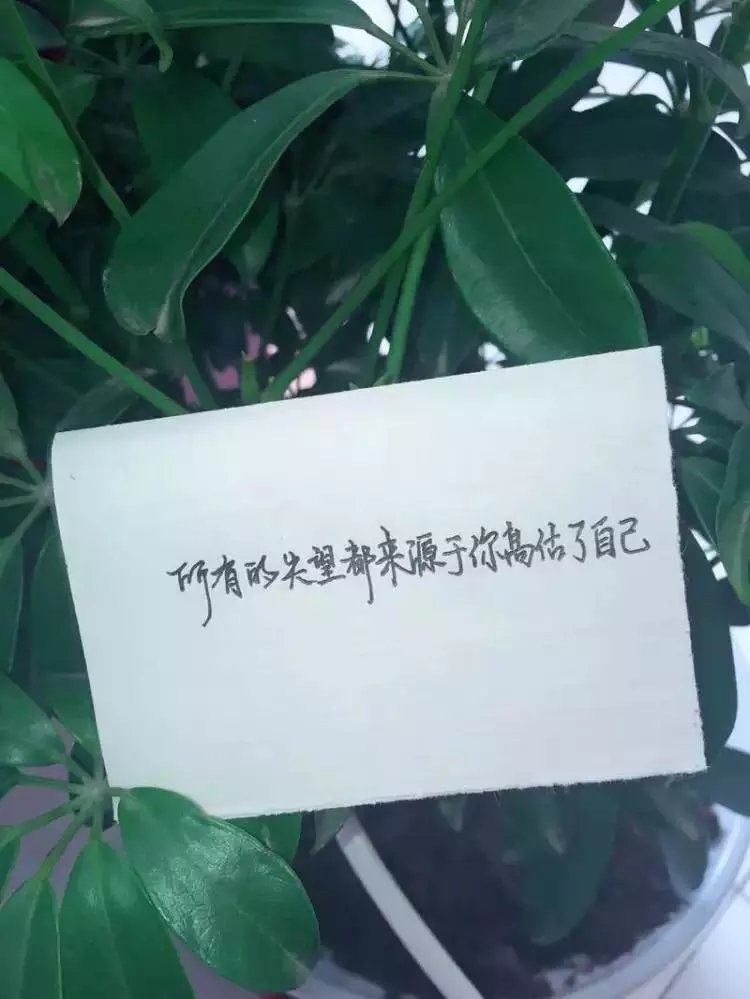 所有的失望都来源于你高估了自己